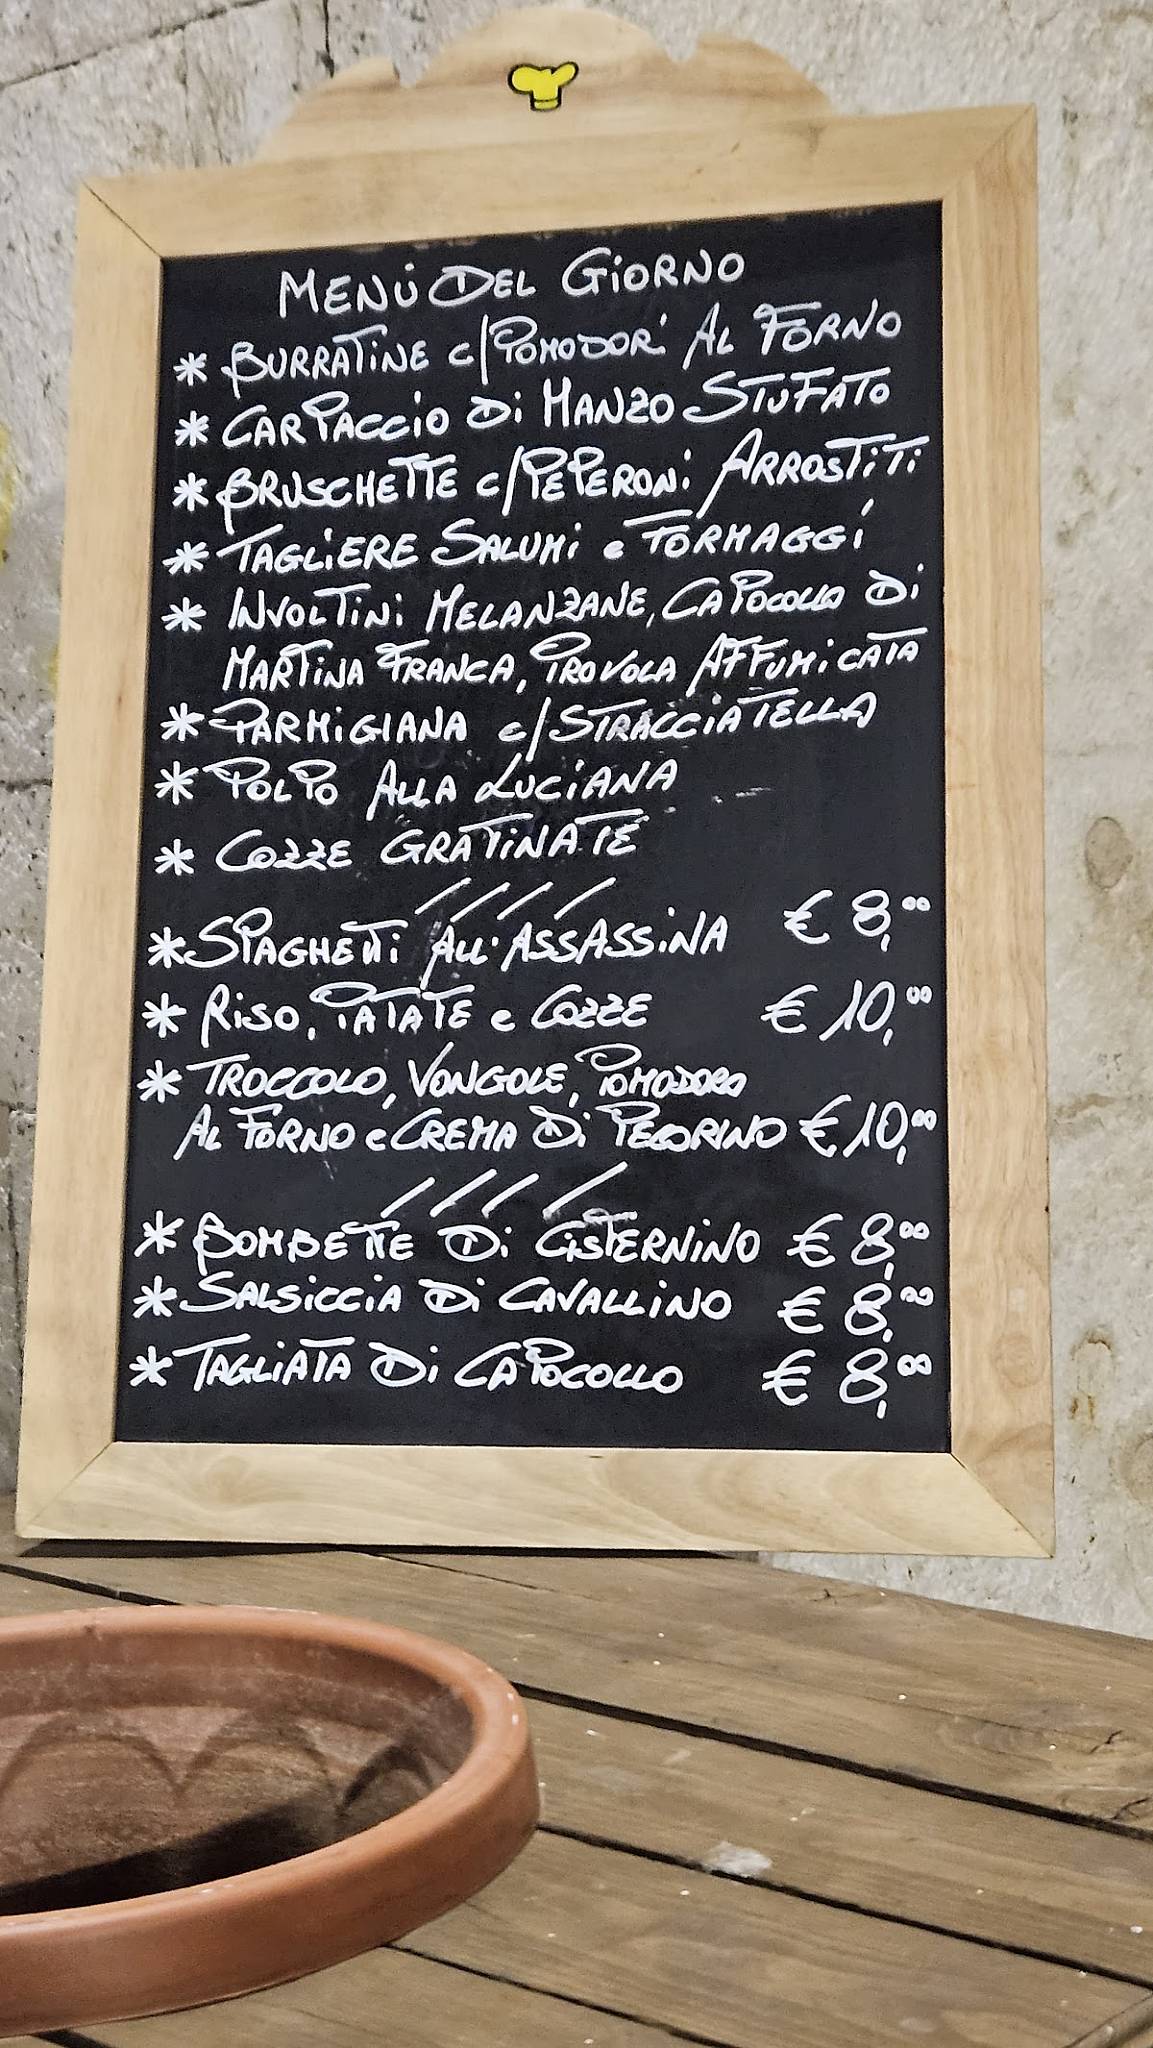 MENÙ DEL GIORNO
* BURRATINE c/POMODORI AL FORNO
* CARPACCIO DI MANZO STUFATO
* BRUSCHETTE c/PEPERONI ARROSTITI
* TAGLIERE SALUMI e FORMAGGI
* INVOLTINI MELANZANE, CAPOCOLLO DI
MARTINA FRANCA, PROVOLA AFFUMICATA
* PARMIGIANA c/STRACCIATELLA
* POLPO ALLA LUCIANA
* COZZE GRATINATE
////
* SPAGHETTI ALL'ASSASSINA € 8,00
* RISO, PATATE e COZZE € 10,00
* TROCCOLO, VONGOLE, POMODORO
AL FORNO e CREMA DI PECORINO € 10,00
////
* BOMBETTE DI CISTERNINO € 8,00
* SALSICCIA DI CAVALLINO € 8,00
* TAGLIATA DI CAPOCOLLO € 8,00